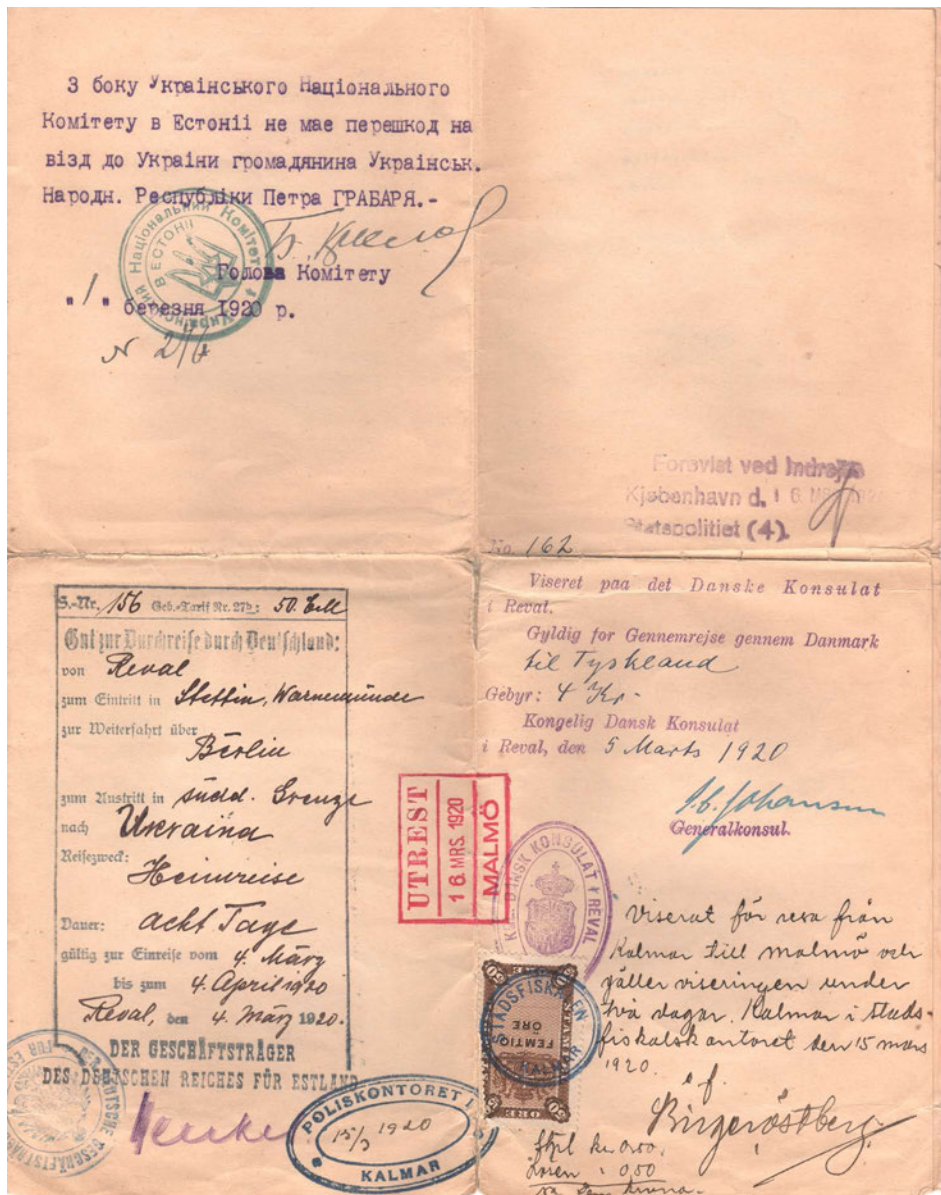 З боку Українського Національного
Комітету в Естонії не має перешкод на
візд до України громадянина Українськ.
Народн. Республіки Петра ГРАБАРЯ.-
Український Національний Комітет
В ЕСТОНІІ
Голова Комітету
"1" березня 1920 р.
N
Forevist ved Indrejse
Kjøbenhavn d. 16 MRS 1920
Statspolitiet (4).
S.-Nr. 156 Geb.-Tarif Nr. 27b: 50.
Gut zur Durchreise durch Deutschland:
von Reval
zum Eintritt in Stettin, Warnemünde
zur Weiterfahrt über
Berlin
zum Austritt in südd. Grenze
nach Ukraina
Reisezweck:
Heimreise
Dauer: acht Tage
gültig zur Einreise vom 4. März
bis zum 4. April 1920
Reval, den 4. März 1920.
DER GESCHÄFTSTRÄGER
DES DEUTSCHEN REICHES FÜR ESTLAND
POLISKONTORET I
15/3 1920
KALMAR
UTREST
16. MRS. 1920
MALMÖ
No. 162
Viseret paa det Danske Konsulat
i Reval.
Gyldig for Gennemrejse gennem Danmark
til Tyskland
Gebyr: 4 Kr.-
Kongelig Dansk Konsulat
i Reval, den 5 Marts 1920
Generalkonsul.
KGL. DANSK KONSULAT I REVAL
STADSFISKALEN
KALMAR
50 50
FEMTIO
ÖRE
50 ÖRE 50
Viserat för resa från
Kalmar till Malmö och
gäller viseringen under
två dagar. Kalmar i stads-
fiskalskontoret den 15 mars
1920.
e. f.
Birger Östberg
Lösen : 0,50